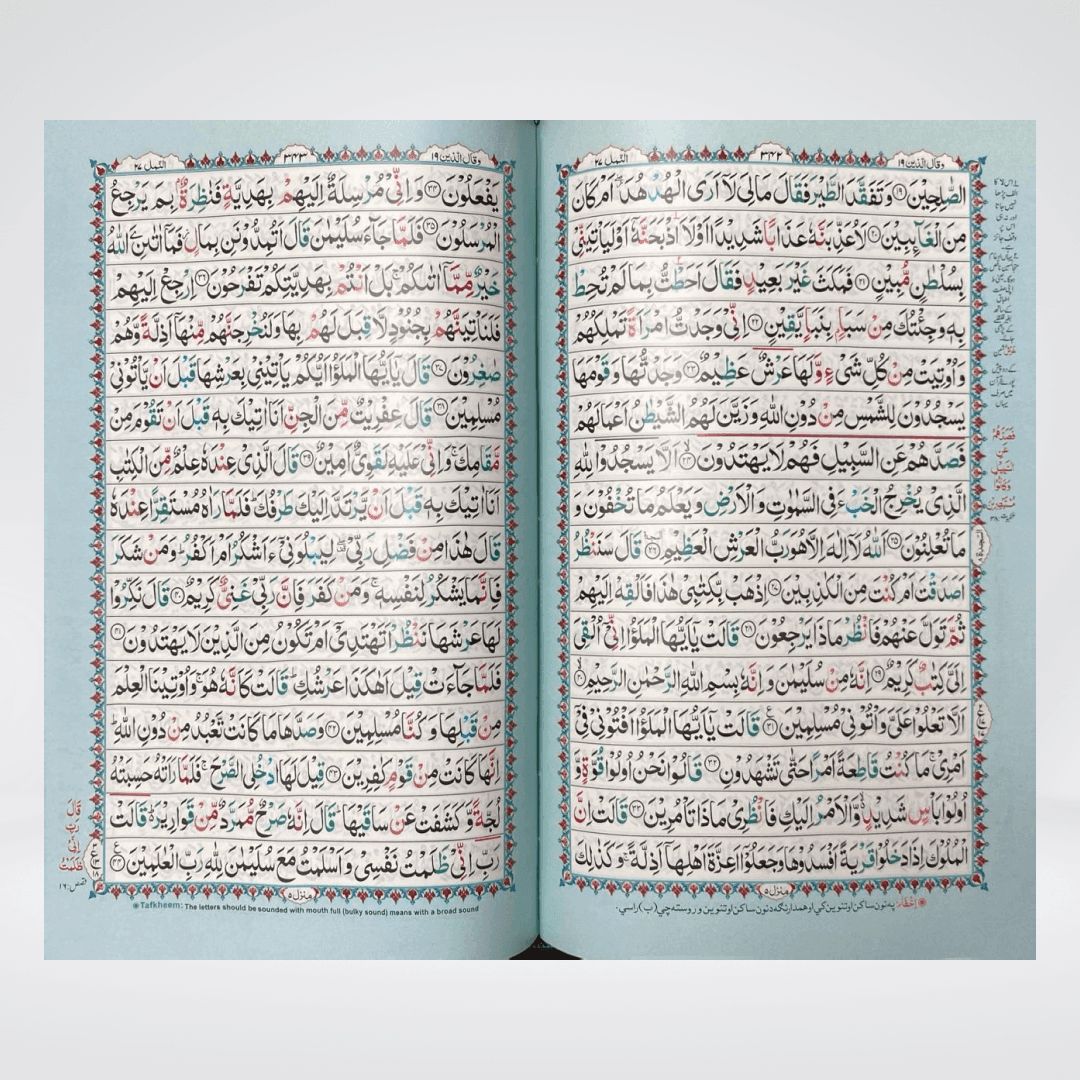 وقال الذين ١٩
٣٤٢
النمل ٢٧
الصّٰلِحِیْنَ ﴿۱۹﴾ وَتَفَقَّدَ الطَّیْرَ فَقَالَ مَالِیَ لَاۤ اَرَی الْهُدْهُدَ ۖ اَمْ كَانَ
مِنَ الْغَآىِٕبِیْنَ ﴿۲۰﴾ لَاُعَذِّبَنَّهٗ عَذَابًا شَدِیْدًا اَوْلَاۡاَذْبَحَنَّهٗۤ اَوْلَیَاْتِیَنِّیْ
بِسُلْطٰنٍ مُّبِیْنٍ ﴿۲۱﴾ فَمَكَثَ غَیْرَ بَعِیْدٍ فَقَالَ اَحَطْتُّ بِمَا لَمْ تُحِطْ
بِهٖ وَجِئْتُكَ مِنْ سَبَاٍۭ بِنَبَاٍ یَّقِیْنٍ ﴿۲۲﴾ اِنِّیْ وَجَدْتُّ امْرَاَةً تَمْلِكُهُمْ
وَاُوْتِیَتْ مِنْ كُلِّ شَیْءٍ وَّلَهَا عَرْشٌ عَظِیْمٌ ﴿۲۳﴾ وَجَدْتُّهَا وَقَوْمَهَا
یَسْجُدُوْنَ لِلشَّمْسِ مِنْ دُوْنِ اللّٰهِ وَزَیَّنَ لَهُمُ الشَّیْطٰنُ اَعْمَالَهُمْ
فَصَدَّهُمْ عَنِ السَّبِیْلِ فَهُمْ لَا یَهْتَدُوْنَ ﴿۲۴﴾ اَلَّا یَسْجُدُوْا لِلّٰهِ
الَّذِیْ یُخْرِجُ الْخَبْءَ فِی السَّمٰوٰتِ وَالْاَرْضِ وَیَعْلَمُ مَا تُخْفُوْنَ وَ
مَا تُعْلِنُوْنَ ﴿۲۵﴾ اَللّٰهُ لَاۤ اِلٰهَ اِلَّا هُوَ رَبُّ الْعَرْشِ الْعَظِیْمِ ﴿۲۶﴾ قَالَ سَنَنْظُرُ
اَصَدَقْتَ اَمْ كُنْتَ مِنَ الْكٰذِبِیْنَ ﴿۲۷﴾ اِذْهَبْ بِّكِتٰبِیْ هٰذَا فَاَلْقِهْ اِلَیْهِمْ
ثُمَّ تَوَلَّ عَنْهُمْ فَانْظُرْ مَاذَا یَرْجِعُوْنَ ﴿۲۸﴾ قَالَتْ یٰۤاَیُّهَا الْمَلَؤُا اِنِّیْۤ اُلْقِیَ
اِلَیَّ كِتٰبٌ كَرِیْمٌ ﴿۲۹﴾ اِنَّهٗ مِنْ سُلَیْمٰنَ وَاِنَّهٗ بِسْمِ اللّٰهِ الرَّحْمٰنِ الرَّحِیْمِ ﴿۳۰﴾
اَلَّا تَعْلُوْا عَلَیَّ وَاْتُوْنِیْ مُسْلِمِیْنَ ﴿۳۱﴾ قَالَتْ یٰۤاَیُّهَا الْمَلَؤُا اَفْتُوْنِیْ فِیْۤ
اَمْرِیْ ۚ مَا كُنْتُ قَاطِعَةً اَمْرًا حَتّٰی تَشْهَدُوْنِ ﴿۳۲﴾ قَالُوْا نَحْنُ اُولُوْا قُوَّةٍ وَّ
اُولُوْا بَاْسٍ شَدِیْدٍ ۙ۬ وَّالْاَمْرُ اِلَیْكِ فَانْظُرِیْ مَاذَا تَاْمُرِیْنَ ﴿۳۳﴾ قَالَتْ اِنَّ
الْمُلُوْكَ اِذَا دَخَلُوْا قَرْیَةً اَفْسَدُوْهَا وَجَعَلُوْۤا اَعِزَّةَ اَهْلِهَاۤ اَذِلَّةً ۚ وَكَذٰلِكَ
منزل ٥
اِخْفَاء: په نون ساکن او تنوین کي او همدارنګه د نون ساکن او تنوین وروسته چي (ب) راسي.
وقال الذين ١٩
٣٤٣
النمل ٢٧
یَفْعَلُوْنَ ﴿۳۴﴾ وَاِنِّیْ مُرْسِلَةٌ اِلَیْهِمْ بِهَدِیَّةٍ فَنٰظِرَةٌۢ بِمَ یَرْجِعُ
الْمُرْسَلُوْنَ ﴿۳۵﴾ فَلَمَّا جَآءَ سُلَیْمٰنَ قَالَ اَتُمِدُّوْنَنِ بِمَالٍ ؗ فَمَاۤ اٰتٰىنِۦَ اللّٰهُ
خَیْرٌ مِّمَّاۤ اٰتٰىكُمْ ۚ بَلْ اَنْتُمْ بِهَدِیَّتِكُمْ تَفْرَحُوْنَ ﴿۳۶﴾ اِرْجِعْ اِلَیْهِمْ
فَلَنَاْتِیَنَّهُمْ بِجُنُوْدٍ لَّا قِبَلَ لَهُمْ بِهَا وَلَنُخْرِجَنَّهُمْ مِّنْهَاۤ اَذِلَّةً وَّهُمْ
صٰغِرُوْنَ ﴿۳۷﴾ قَالَ یٰۤاَیُّهَا الْمَلَؤُا اَیُّكُمْ یَاْتِیْنِیْ بِعَرْشِهَا قَبْلَ اَنْ یَّاْتُوْنِیْ
مُسْلِمِیْنَ ﴿۳۸﴾ قَالَ عِفْرِیْتٌ مِّنَ الْجِنِّ اَنَا اٰتِیْكَ بِهٖ قَبْلَ اَنْ تَقُوْمَ مِنْ
مَّقَامِكَ ۚ وَاِنِّیْ عَلَیْهِ لَقَوِیٌّ اَمِیْنٌ ﴿۳۹﴾ قَالَ الَّذِیْ عِنْدَهٗ عِلْمٌ مِّنَ الْكِتٰبِ
اَنَا اٰتِیْكَ بِهٖ قَبْلَ اَنْ یَّرْتَدَّ اِلَیْكَ طَرْفُكَ ؕ فَلَمَّا رَاٰهُ مُسْتَقِرًّا عِنْدَهٗ
قَالَ هٰذَا مِنْ فَضْلِ رَبِّیْ ۖ۫ لِیَبْلُوَنِیْۤ ءَاَشْكُرُ اَمْ اَكْفُرُ ؕ وَمَنْ شَكَرَ
فَاِنَّمَا یَشْكُرُ لِنَفْسِهٖ ۚ وَمَنْ كَفَرَ فَاِنَّ رَبِّیْ غَنِیٌّ كَرِیْمٌ ﴿۴۰﴾ قَالَ نَكِّرُوْا
لَهَا عَرْشَهَا نَنْظُرْ اَتَهْتَدِیْۤ اَمْ تَكُوْنُ مِنَ الَّذِیْنَ لَا یَهْتَدُوْنَ ﴿۴۱﴾
فَلَمَّا جَآءَتْ قِیْلَ اَهٰكَذَا عَرْشُكِ ؕ قَالَتْ كَاَنَّهٗ هُوَ ۚ وَاُوْتِیْنَا الْعِلْمَ
مِنْ قَبْلِهَا وَكُنَّا مُسْلِمِیْنَ ﴿۴۲﴾ وَصَدَّهَا مَا كَانَتْ تَّعْبُدُ مِنْ دُوْنِ اللّٰهِ ؕ
اِنَّهَا كَانَتْ مِنْ قَوْمٍ كٰفِرِیْنَ ﴿۴۳﴾ قِیْلَ لَهَا ادْخُلِی الصَّرْحَ ۚ فَلَمَّا رَاَتْهُ حَسِبَتْهُ
لُجَّةً وَّكَشَفَتْ عَنْ سَاقَیْهَا ؕ قَالَ اِنَّهٗ صَرْحٌ مُّمَرَّدٌ مِّنْ قَوَارِیْرَ ؕ۬ قَالَتْ
رَبِّ اِنِّیْ ظَلَمْتُ نَفْسِیْ وَاَسْلَمْتُ مَعَ سُلَیْمٰنَ لِلّٰهِ رَبِّ الْعٰلَمِیْنَ ﴿۴۴﴾
قَالَ
رَبِّ
اِنِّیْ
ظَلَمْتُ
قصص: ١٦
منزل ٥
Tafkheem: The letters should be sounded with mouth full (bulky sound) means with a broad sound